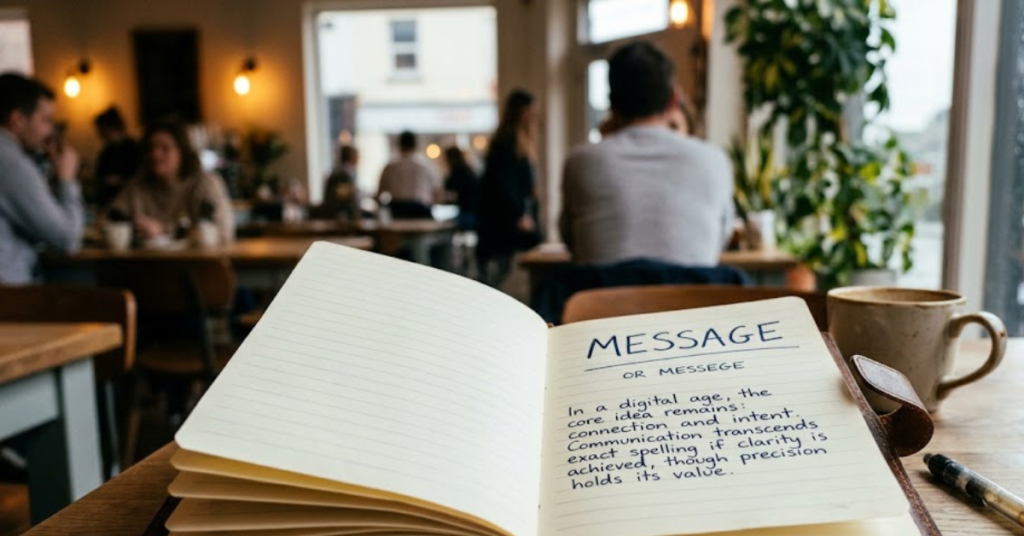 MESSAGE
OR MESSEGE
In a digital age, the
core idea remains:
connection and intent.
Communication transcends
exact spelling if clarity is
achieved, though precision
holds its value.